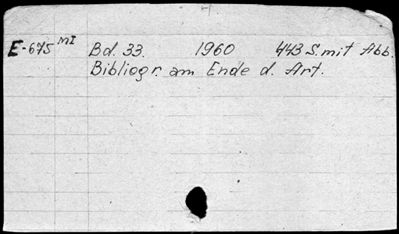 E-675 MI Bd. 33. 1960 443 S. mit Abb.
Bibliogr. am Ende d. Art.